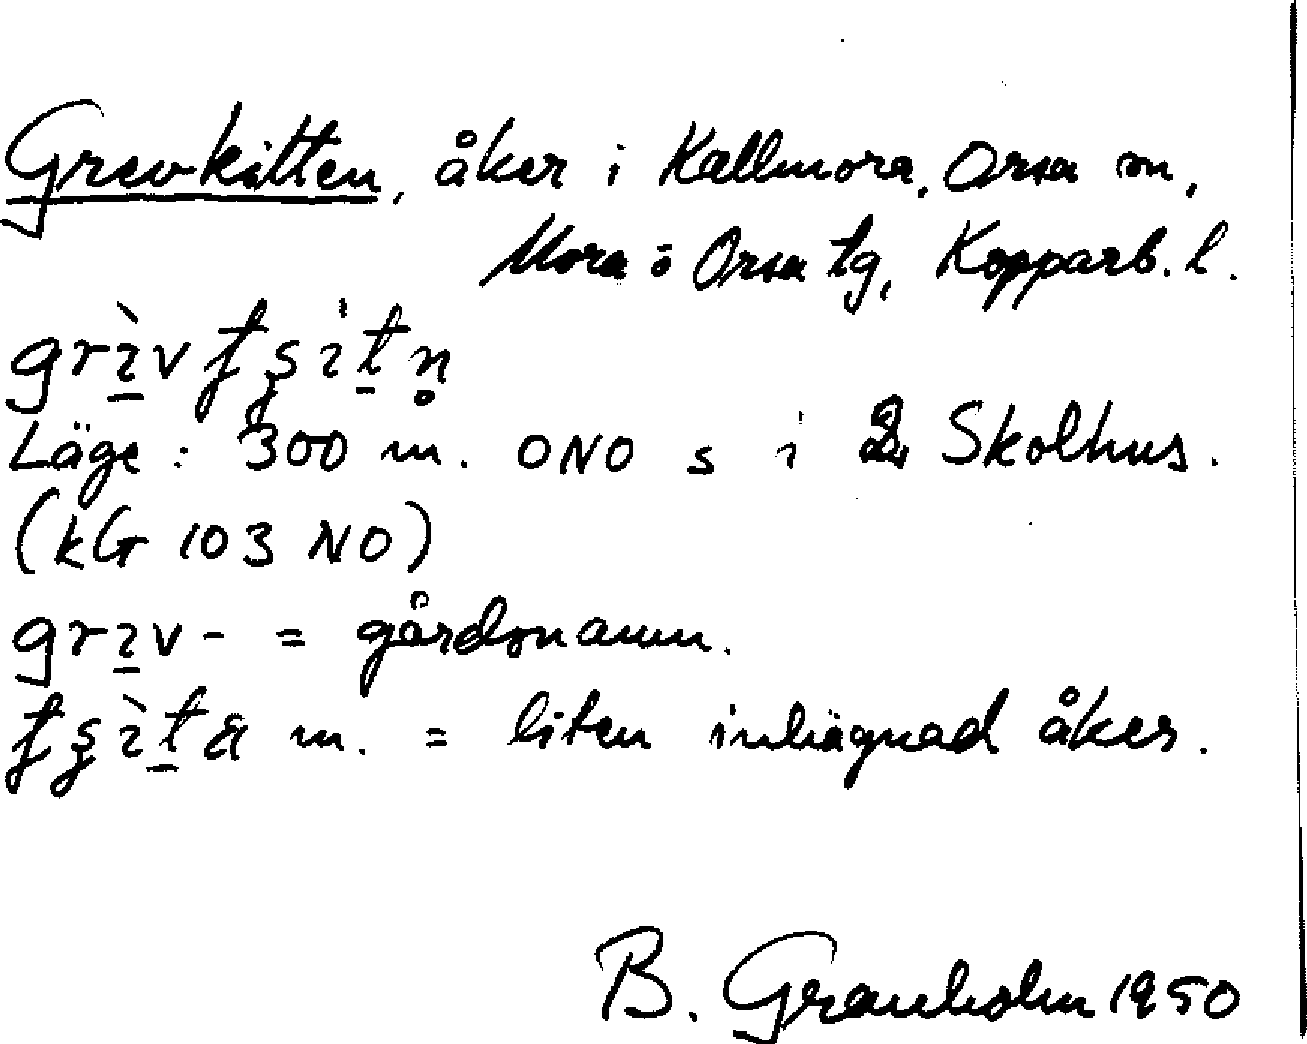 Grevkitten, åker i Kallmora, Orsa sn,
Mora o Orsa tg, Kopparb. l.
Läge: 300 m. ONO s i Skolhus.
(kG 103 NO)
= gårdsnamn.
m. = liten inhägnad åker.
B. Granholm 1950